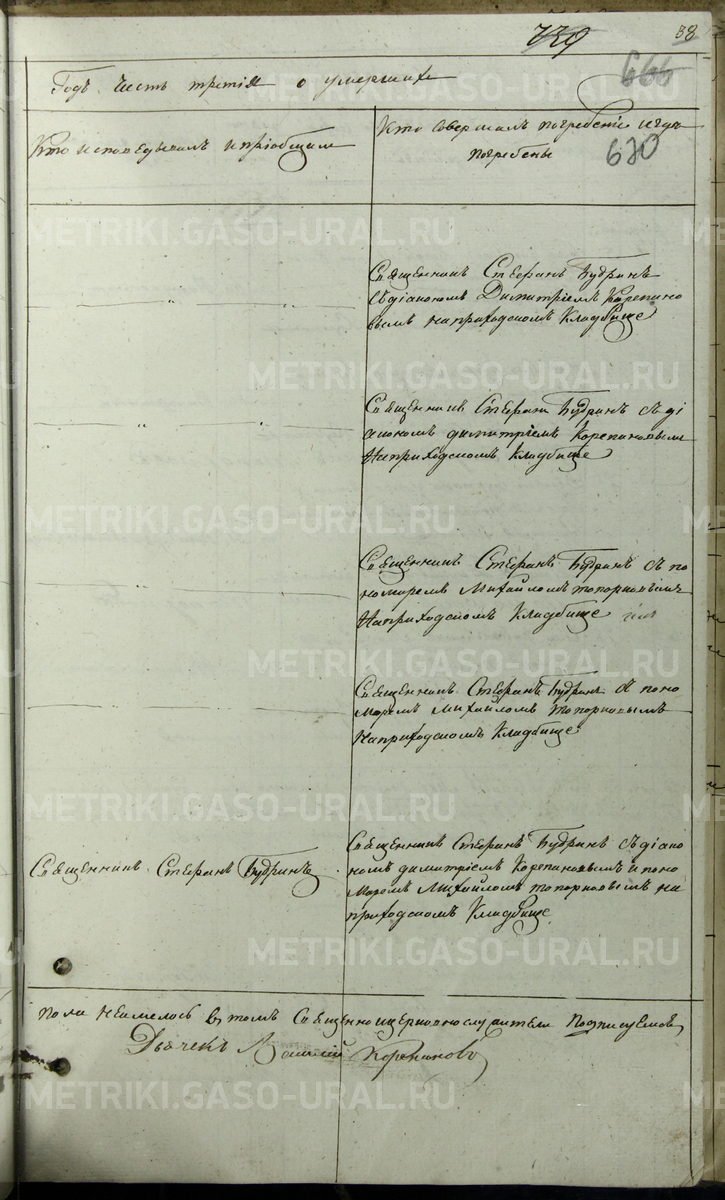 739
38
666
Годъ часть третія о умершихъ
Кто исповедывалъ и пріобщалъ
Кто совершалъ погребеніе и гдѣ
погребены
630
METRIKI.GASO-URAL.RU
Священникъ Стефанъ Будринъ
съ діакономъ Димитріемъ Корепано
вымъ на приходскомъ кладбище
METRIKI.GASO-URAL.RU
Священникъ Стефанъ Будринъ съ ді
акономъ димитріемъ Корепановымъ
На приходскомъ кладбище
METRIKI.GASO-URAL.RU
Священникъ Стефанъ Будринъ съ по
номаремъ Михайломъ топорковымъ
На приходскомъ кладбище
METRIKI.GASO-URAL.RU
Священникъ Стефанъ Будринъ съ поно
маремъ Михайломъ топорковымъ
На приходскомъ кладбище
METRIKI.GASO-URAL.RU
Священникъ Стефанъ Будринъ
Священникъ Стефанъ Будринъ съ діако
номъ димитріемъ Корепановымъ и поно
маремъ Михайломъ топорковымъ на
приходскомъ кладбище
METRIKI.GASO-URAL.RU
пола неимелось в томъ Священно и церковно служители подписуемся
Дьячекъ Василий Корепановъ
METRIKI.GASO-URAL.RU